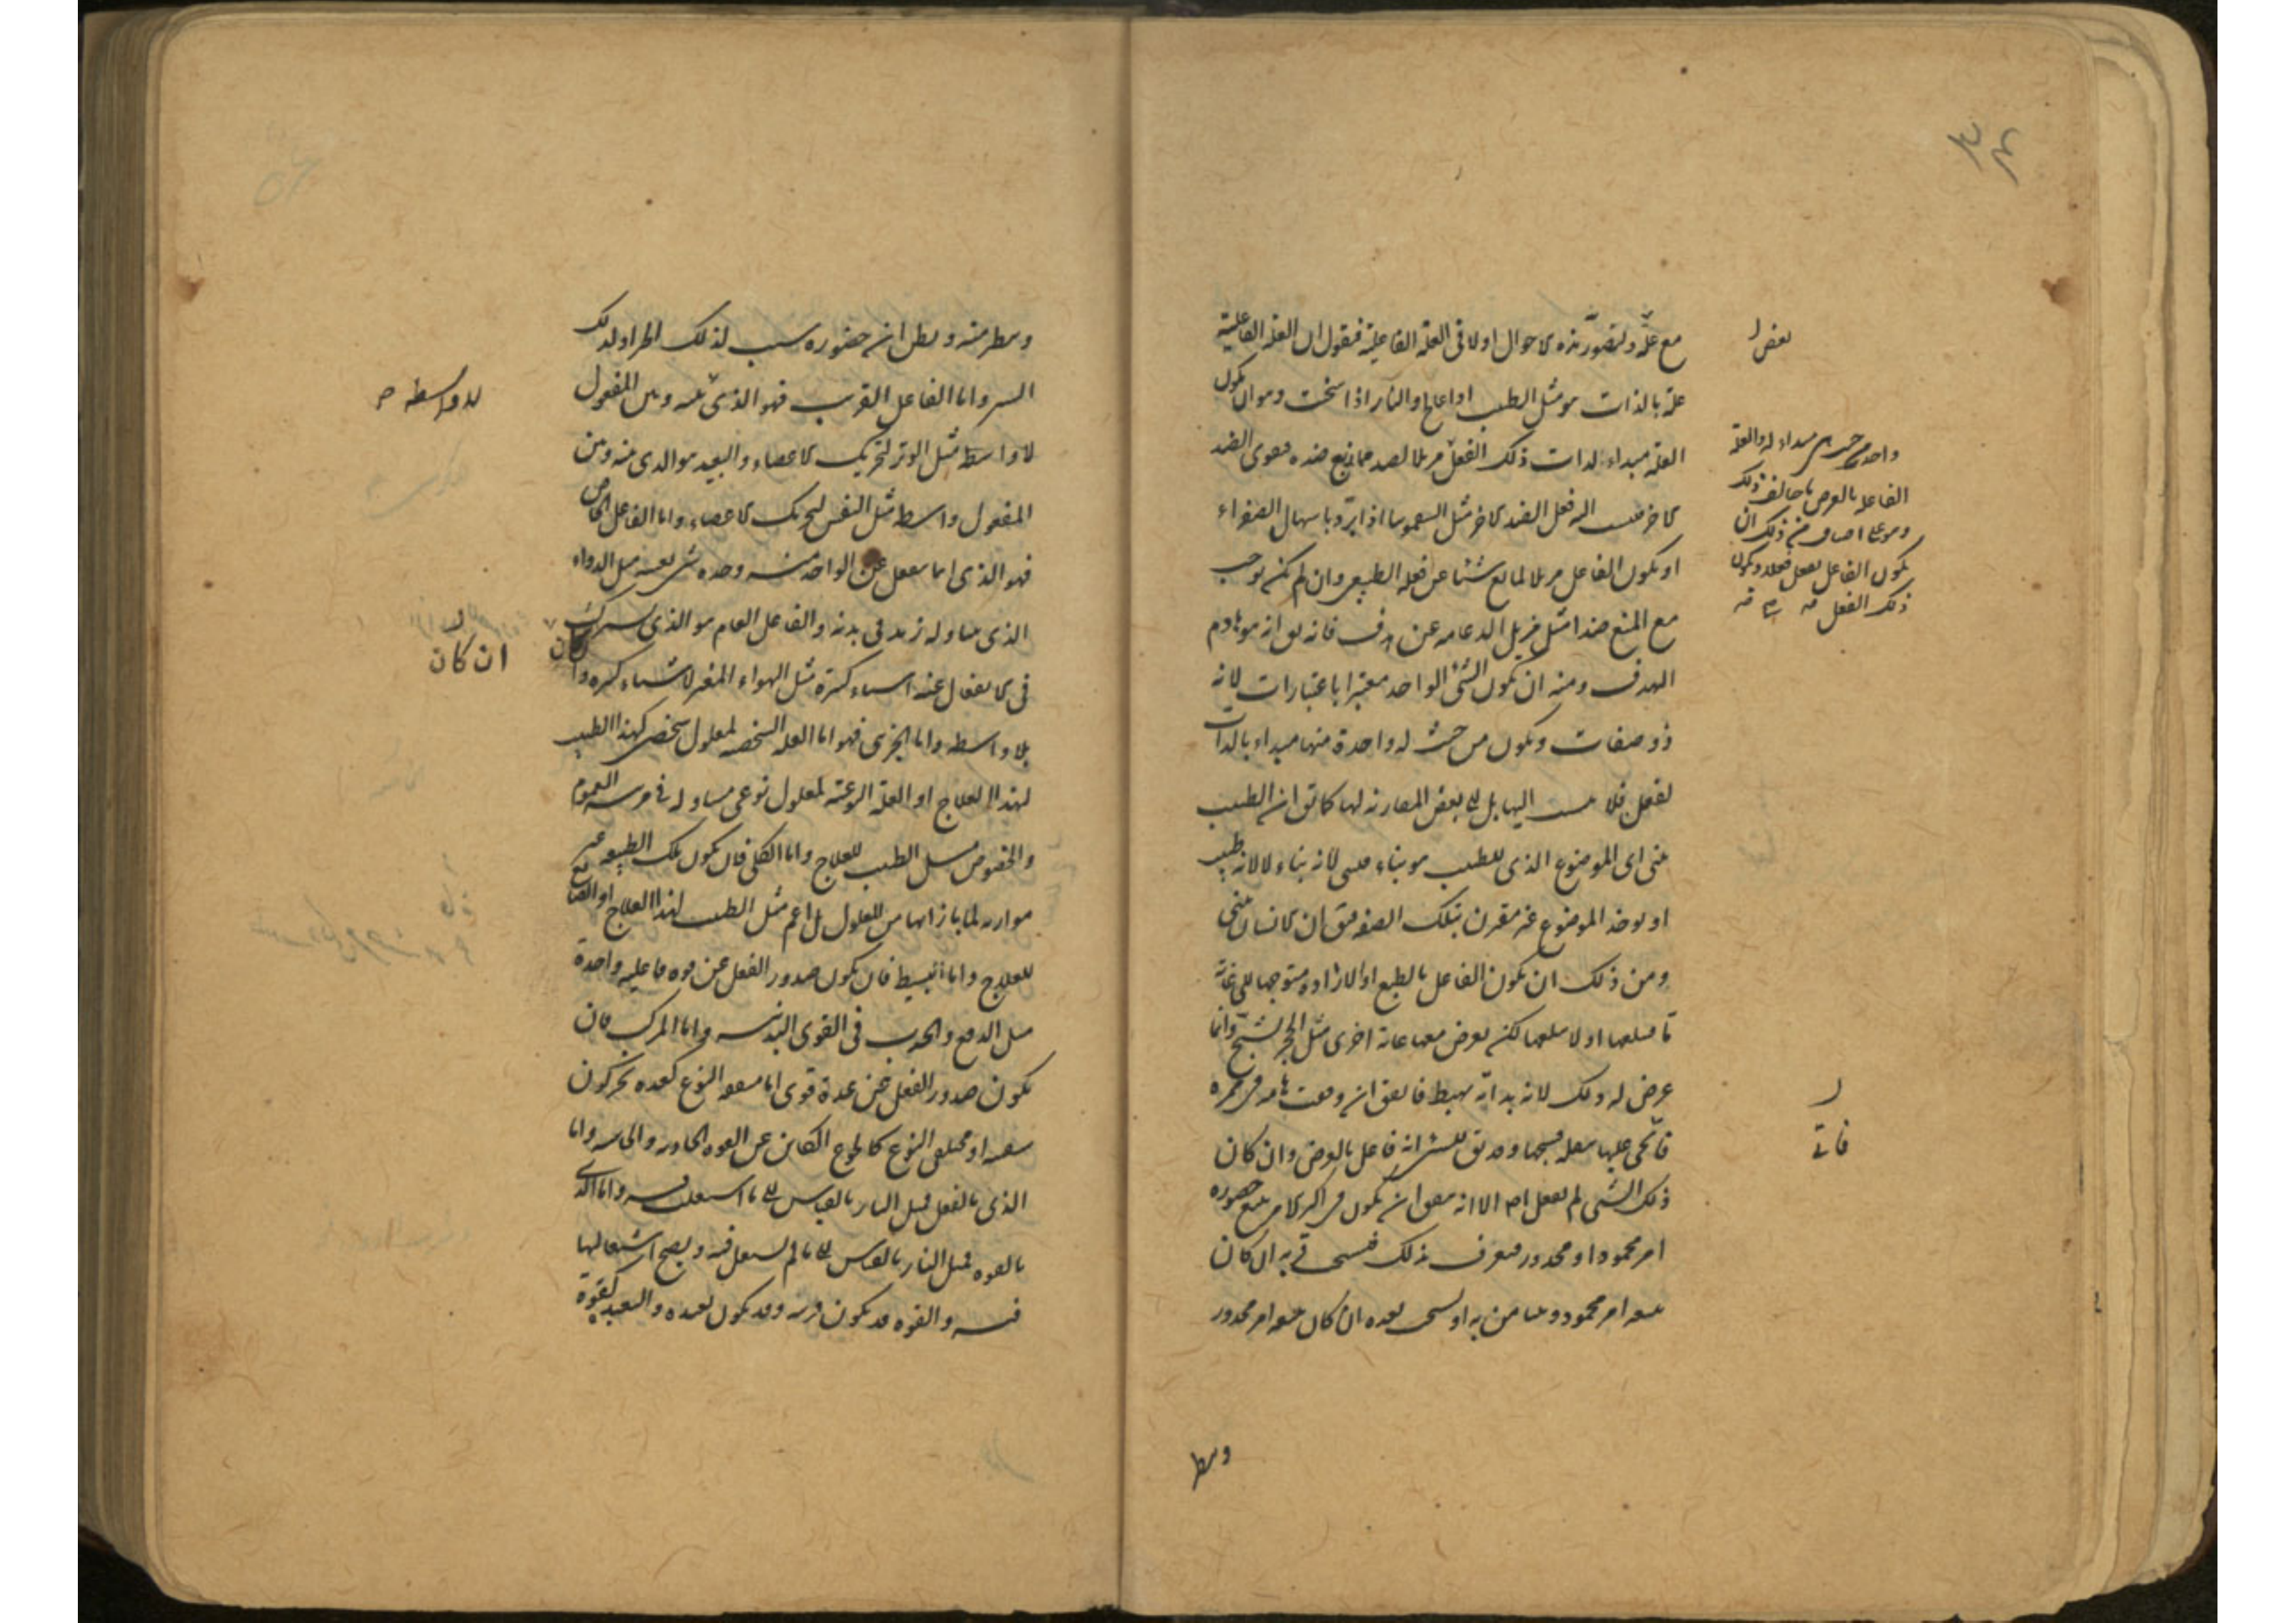 مع علة ولنصور هذه الاحوال اولا فى العلة الفاعلية فنقول ان العلة الفاعلية
علة بالذات هو مثل الطبيب اذا عالج والنار اذا سخنت وهو ان يكون
العلة مبداء لذات ذلك الفعل
الاخر فينسب اليه فعل الضد الاخر مثل السقمونيا اذا برد باسهال الصفراء
او يكون الفاعل مزيلا لمانع شيئا عن فعله الطبيعى وان لم يكن يوجب
مع المنع ضدا مثل مزيل الدعامة عن هدف فانه يق انه هو هادم
الهدف ومنه ان يكون الشى الواحد معتبرا باعتبارات لانه
ذو صفات ويكون من حيث له واحدة منها مبداء بالذات
لفعل فلا ينسب اليها بل الى بعض المقارنة لها كما يق ان الطبيب
يبنى اى الموضوع الذى للطبيب هو بناء فيبنى لانه بناء لا لانه طبيب
او يوخذ الموضوع غير مقرن بتلك الصفة فيق ان الانسان يبنى
ومن ذلك ان يكون الفاعل بالطبع او الارادة متوجها الى غاية
ما فيبلغها او لا يبلغها لكن يعرض معها غاية اخرى مثل الحجر يشج وانما
عرض له ذلك لانه بذاته يهبط فاتفق ان وقعت هامة فى ممره
فاتى عليها بثقله فشجها وقد يق للشى انه فاعل بالعرض وان كان
ذلك الشى لم يفعل اصلا الا انه يتفق ان يكون فى اكثر الامر يتبع حضوره
امر محمود او محذور فيعرف بذلك فيستحب قربه ان كان
يتبعه امر محمود ويتيامن به او يستحب بعده ان كان يتبعه امر محذور
بعض
واحد من حيث هى مبداء له والعلة
الفاعلة بالعرض ما خالف ذلك
وهو على اصناف من ذلك ان
يكون الفاعل يفعل فعلا ويكون
ذلك الفعل
فاتى
ويطر
ويتطير منه ويظن ان حضوره سبب لذلك الخير او لذلك
الشر واما الفاعل القريب فهو الذى بينه وبين المفعول
لا واسطة مثل الوتر لتحريك الاعضاء والبعيد هو الذى بينه وبين
المفعول واسطة مثل النفس لتحريك الاعضاء واما الفاعل الخاص
فهو الذى انما ينفعل عن الواحد منه وحده شى بعينه مثل الدواء
الذى يتناوله زيد فى بدنه والفاعل العام هو الذى يشترك
فى الانفعال عنه اشياء كثيرة مثل الهواء المغير لاشياء كثيرة وان كان
بلا واسطة واما الجزئى فهو اما العلة الشخصية لمعلول شخصى كهذا الطبيب
لهذا العلاج او العلة النوعية لمعلول نوعى مساو له فى مرتبة العموم
والخصوص مثل الطبيب للعلاج واما الكلى فان يكون تلك الطبيعة غير
موازية لما بازائها من المعلول بل اعم مثل الطبيب لهذا العلاج او الصانع
للعلاج واما البسيط فان يكون صدور الفعل عن قوة فاعلية واحدة
مثل الدفع والجذب فى القوى البدنية واما المركب فان
يكون صدور الفعل عن عدة قوى اما متفقة النوع كعدة يحركون
سفينة او مختلفة النوع كالجوع الكائن عن القوة الجاذبة والحاسة واما
الذى بالفعل فمثل النار بالقياس الى ما اشتعلت فيه واما الذى
بالقوة فمثل النار بالقياس الى ما لم يشتعل فيه ويصح اشتعالها
فيه والقوة قد يكون قريبة وقد يكون بعيدة والبعيد كقوة
ان كان